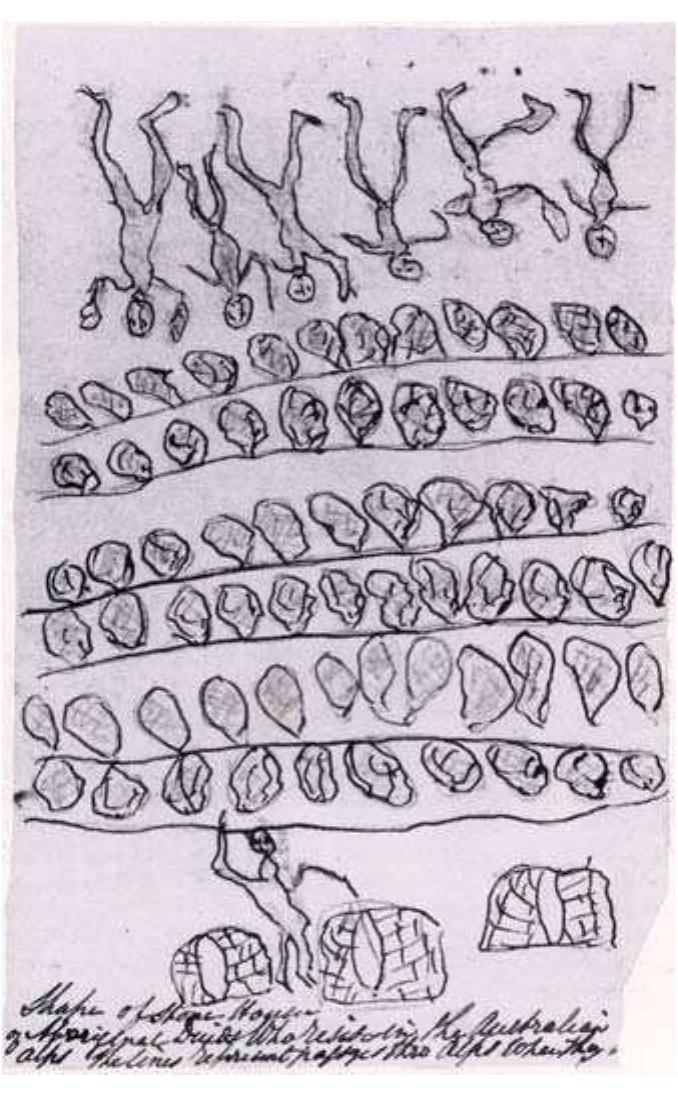 Shape of Stone Houses
of Aboriginal Druids Who resist in the Australian
Alps The lines represent passages thro Alps When they